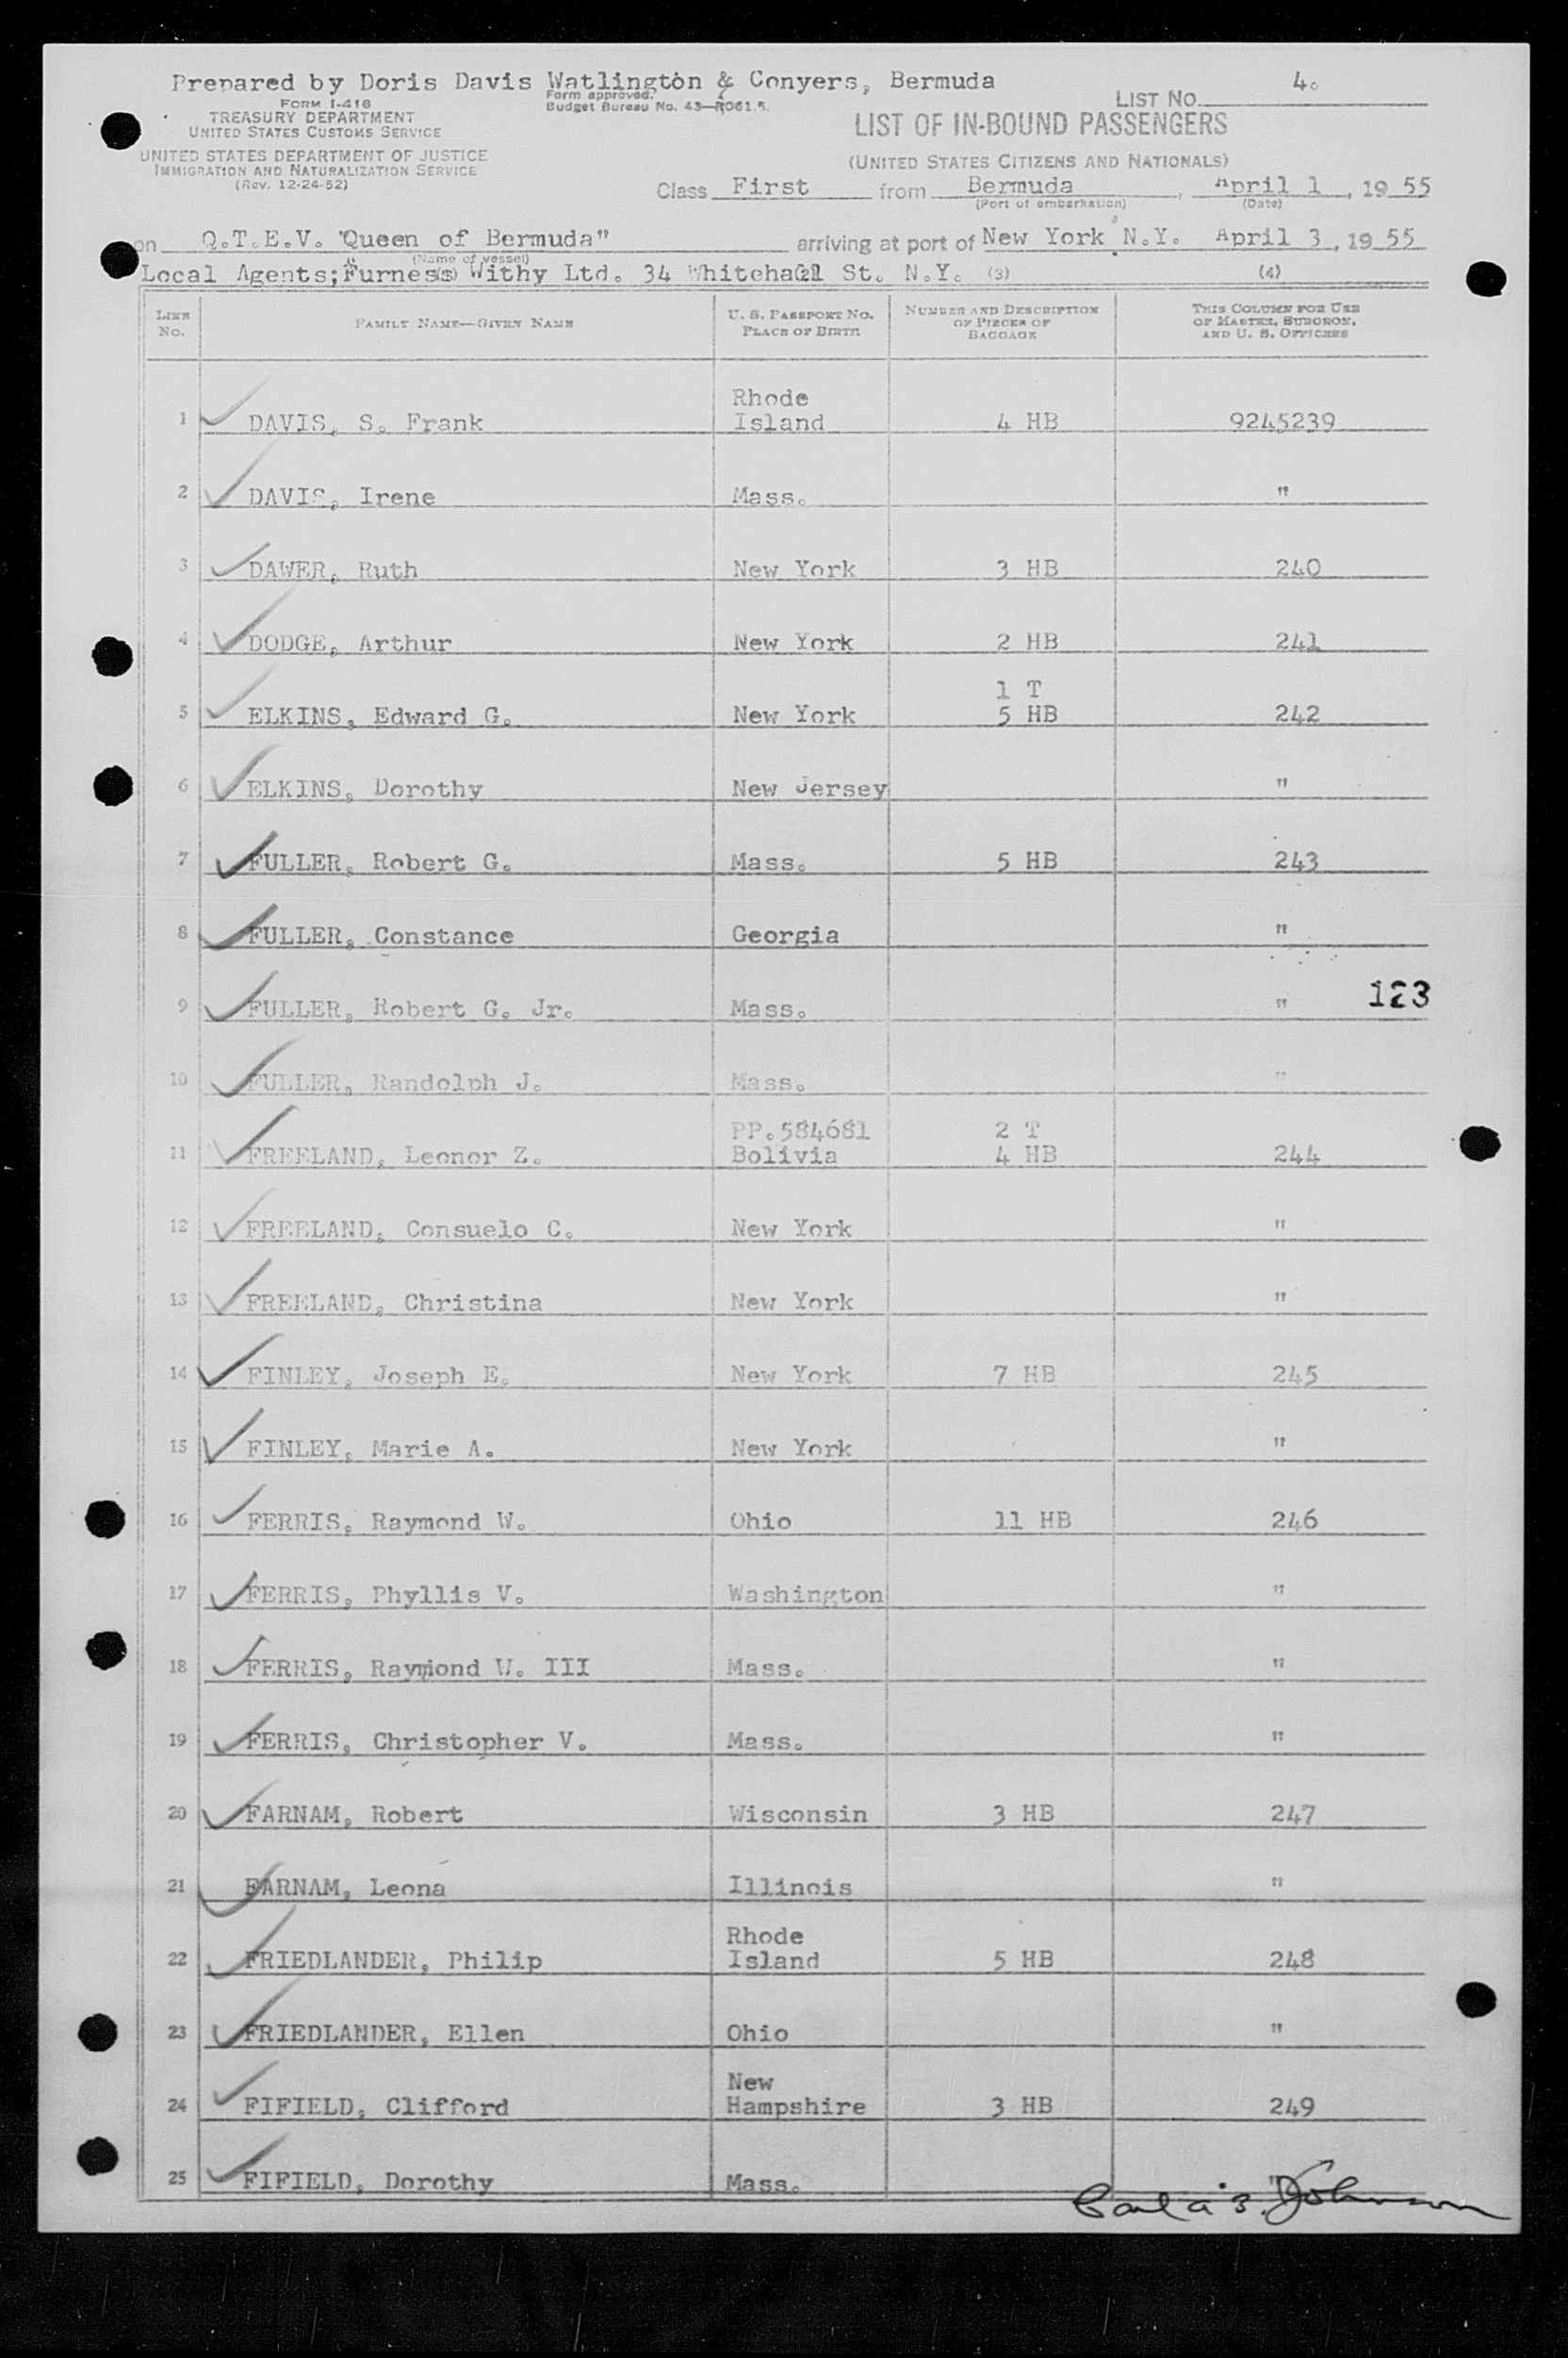 Prepared by Doris Davis Watlington & Conyers, Bermuda
Form approved.
Budget Bureau No. 43—R061.5.
LIST No. 4.
FORM I-418
TREASURY DEPARTMENT
UNITED STATES CUSTOMS SERVICE
UNITED STATES DEPARTMENT OF JUSTICE
IMMIGRATION AND NATURALIZATION SERVICE
(Rev. 12-24-52)
LIST OF IN-BOUND PASSENGERS
(UNITED STATES CITIZENS AND NATIONALS)
Class First from Bermuda, April 1, 1955
(Port of embarkation) (Date)
on Q.T.E.V. "Queen of Bermuda" arriving at port of New York N.Y. April 3, 1955
(Name of vessel)
Local Agents; Furness Withy Ltd. 34 Whitehall St. N.Y. (3) (4)
LINE No. FAMILY NAME—GIVEN NAME U. S. PASSPORT NO. PLACE OF BIRTH NUMBER AND DESCRIPTION OF PIECES OF BAGGAGE THIS COLUMN FOR USE OF MASTER, SURGEON, AND U. S. OFFICERS
1 DAVIS, S. Frank Rhode Island 4 HB 9245239
2 DAVIS, Irene Mass. "
3 DAWER, Ruth New York 3 HB 240
4 DODGE, Arthur New York 2 HB 241
5 ELKINS, Edward G. New York 1 T 5 HB 242
6 ELKINS, Dorothy New Jersey "
7 FULLER, Robert G. Mass. 5 HB 243
8 FULLER, Constance Georgia "
9 FULLER, Robert G. Jr. Mass. " 123
10 FULLER, Randolph J. Mass. "
11 FREELAND, Leonor Z. PP.584681 Bolivia 2 T 4 HB 244
12 FREELAND, Consuelo C. New York "
13 FREELAND, Christina New York "
14 FINLEY, Joseph E. New York 7 HB 245
15 FINLEY, Marie A. New York "
16 FERRIS, Raymond W. Ohio 11 HB 246
17 FERRIS, Phyllis V. Washington "
18 FERRIS, Raymond W. III Mass. "
19 FERRIS, Christopher V. Mass. "
20 FARNAM, Robert Wisconsin 3 HB 247
21 FARNAM, Leona Illinois "
22 FRIEDLANDER, Philip Rhode Island 5 HB 248
23 FRIEDLANDER, Ellen Ohio "
24 FIFIELD, Clifford New Hampshire 3 HB 249
25 FIFIELD, Dorothy Mass. "
Johnson